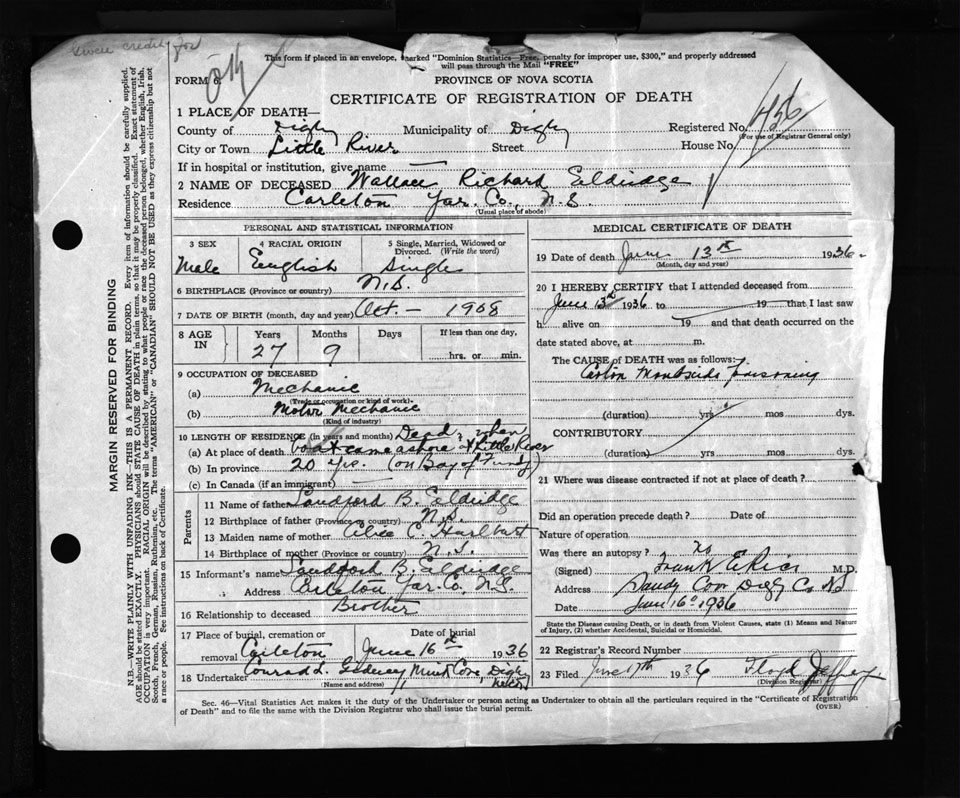 Given credit for
This form if placed in an envelope, marked "Dominion Statistics—Free, penalty for improper use, $300," and properly addressed
will pass through the Mail "FREE"
FORM 6
PROVINCE OF NOVA SCOTIA
CERTIFICATE OF REGISTRATION OF DEATH
1 PLACE OF DEATH—
County of Digby Municipality of Digby Registered No. 436
(For use of Registrar General only)
City or Town Little River Street House No.
If in hospital or institution, give name —
2 NAME OF DECEASED Wallace Richard Eldridge
Residence Carleton Yar. Co., N.S.
(Usual place of abode)
PERSONAL AND STATISTICAL INFORMATION
3 SEX 4 RACIAL ORIGIN 5 Single, Married, Widowed or Divorced. (Write the word)
Male English Single
6 BIRTHPLACE (Province or country) N.S.
7 DATE OF BIRTH (month, day and year) Oct. — 1908
8 AGE IN Years Months Days If less than one day,
27 9 hrs. or min.
9 OCCUPATION OF DECEASED
(a) Mechanic
(Trade or occupation or kind of work)
(b) Motor Mechanic
(Kind of industry)
10 LENGTH OF RESIDENCE (in years and months) Dead, when
(a) At place of death boat came ashore at Little River
(b) In province 20 yrs. (on Bay of Fundy)
(c) In Canada (if an immigrant) —
Parents
11 Name of father Sandford B. Eldridge
12 Birthplace of father (Province or country) N.S.
13 Maiden name of mother Alice C. Hurlbert
14 Birthplace of mother (Province or country) N.S.
15 Informant's name Sandford B. Eldridge
Address Carleton Yar. Co., N.S.
16 Relationship to deceased Brother
17 Place of burial, cremation or removal Carleton Date of burial June 16th 1936
18 Undertaker Conrad Mink Cove, Digby
(Name and address)
MEDICAL CERTIFICATE OF DEATH
19 Date of death June 13th 1936
(Month, day and year)
20 I HEREBY CERTIFY that I attended deceased from
June 13th 1936 to 19 that I last saw
h alive on 19 and that death occurred on the
date stated above, at m.
The CAUSE of DEATH was as follows:
Carbon Monoxide Poisoning
(duration) yrs mos dys.
CONTRIBUTORY
(duration) yrs mos dys.
21 Where was disease contracted if not at place of death?
Did an operation precede death? Date of
Nature of operation
Was there an autopsy? no
(Signed) Frank E Rice M.D.
Address Sandy Cove Digby Co NS
Date June 16th 1936
State the Disease causing Death, or in death from Violent Causes, state (1) Means and Nature of Injury, (2) whether Accidental, Suicidal or Homicidal.
22 Registrar's Record Number
23 Filed June 17th 1936 Floyd Jeffrey
(Division Registrar)
Sec. 46—Vital Statistics Act makes it the duty of the Undertaker or person acting as Undertaker to obtain all the particulars required in the "Certificate of Registration
of Death" and to file the same with the Division Registrar who shall issue the burial permit.
(OVER)
MARGIN RESERVED FOR BINDING
N.B.—WRITE PLAINLY WITH UNFADING INK—THIS IS A PERMANENT RECORD. Every item of information should be carefully supplied.
AGE should be stated EXACTLY. PHYSICIANS should STATE CAUSE OF DEATH in plain terms, so that it may be properly classified. Exact statement of
OCCUPATION is very important. RACIAL ORIGIN will be described by stating to what people or race the deceased person belonged, whether English, Irish,
Scotch, French, German, Russian, Ruthenian, etc. The terms "AMERICAN" or "CANADIAN" SHOULD NOT BE USED as they express citizenship but not
a race or people. See instructions on back of Certificate.